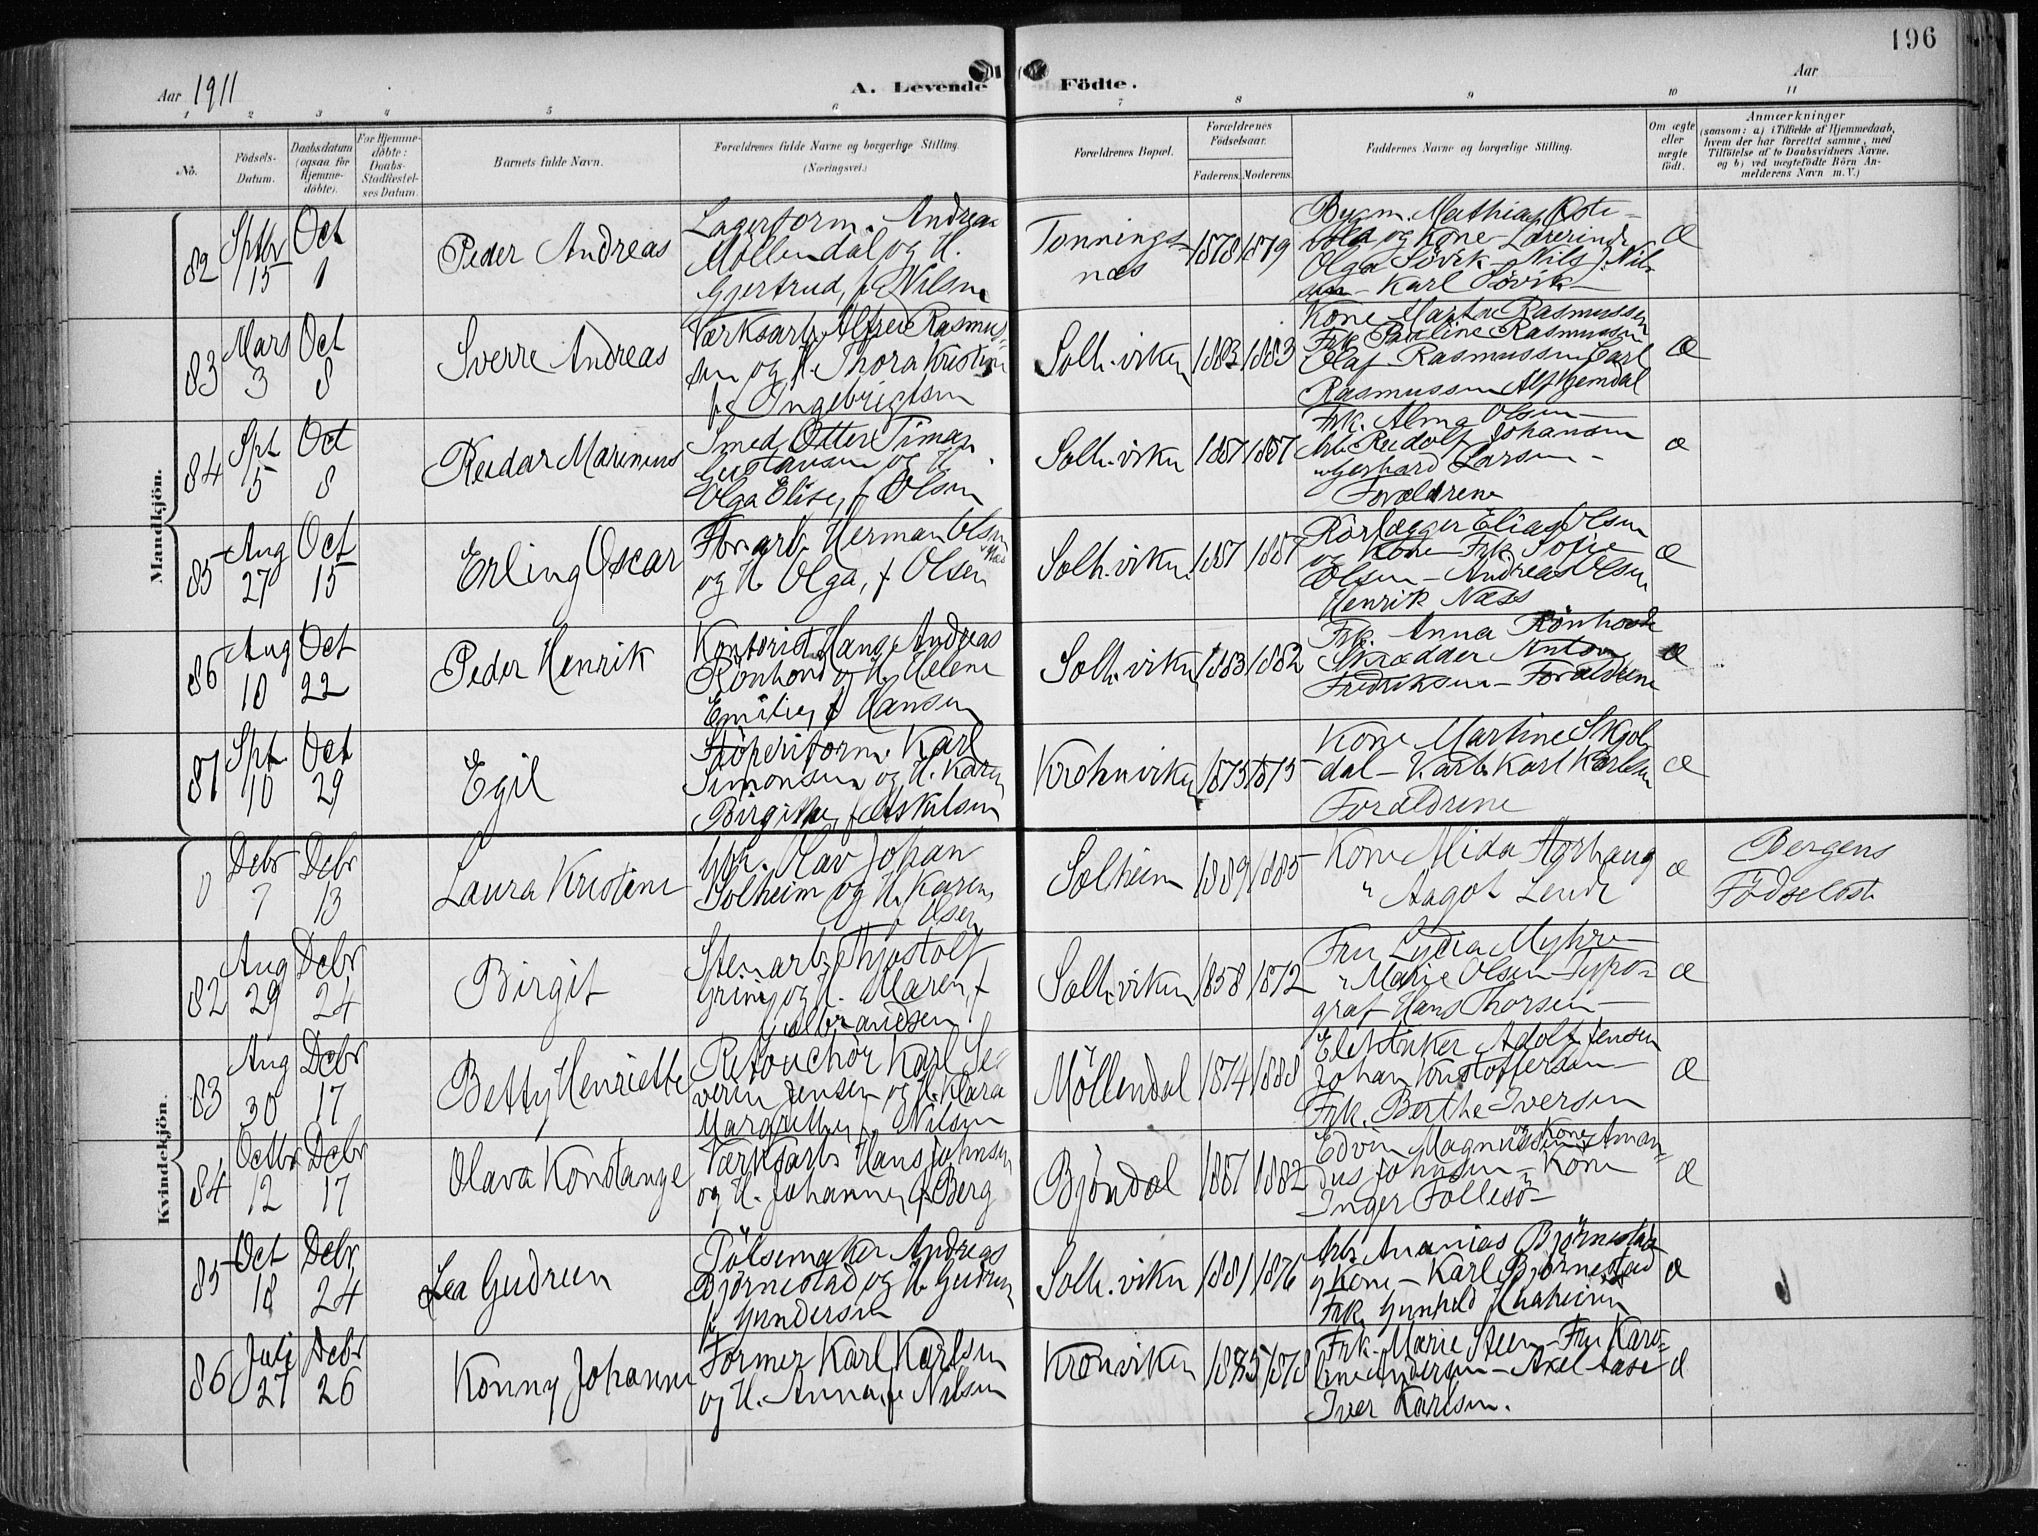 196
Aar 1911
A. Levende Födte.
Aar
1 2 3 4 5 6 7 8 9 10 11
No.
Födsels-
Datum.
Daabsdatum
(ogsaa for
Hjemme-
döbte).
For Hjemme-
döbte:
Daabs-
Stadfæstel-
ses Datum.
Barnets fulde Navn.
Forældrenes fulde Navne og borgerlige Stilling.
(Næringsvei.)
Forældrenes Bopæl.
Forældrenes
Fødselsaar.
Faderens. Moderens.
Faddernes Navne og borgerlige Stilling.
Om ægte
eller
uægte
født.
Anmærkninger
(saasom: a) i Tilfælde af Hjemmedaab,
hvem der har forrettet samme, med
Tilföielse af to Daabsvidners Navne,
og b) ved uegtefödte Börn An-
melderens Navn m. V.)
Mandkjön.
82
Sptbr
15
Oct
1
Peder Andreas
Lagerform. Andreas
Möllendal og H.
Gjertrud, f. Nilsen
Tonnings-
næs
1878 1879
Bygm. Mathias Öste-
vold og Kone Lærerinde
Olga Sövik - Nils J. Nil-
sen - Karl Sövik
æ
83
Mars
3
Oct
8
Sverre Andreas
Værksarb. Alfred Rasmus-
sen og H. Thora Kristine
f. Ingebrigtsen
Solh.viken
1883 1883
Kone Marta Rasmussen
Frk. Pauline Rasmussen
Olaf Rasmussen Carl
Rasmussen Alf Hjemdal
æ
84
Spt
5
Oct
8
Reidar Marinius
Smed Otter Timan
Gustavsen og H.
Olga Elise, f. Olsen
Solh.viken
1887 1887
Frk. Alma Olsen
Arb. Reidolf Johansen
" Gerhard Larsen -
Forældrene
æ
85
Aug
27
Oct
15
Erling Oscar
For.arb. Herman Olsen
Næss
og H. Olga, f. Olsen
Solh.viken
1887 1887
Rörlægger Elias Olsen
og Kone Frk. Sofie
Olsen - Andreas Olsen
Henrik Næss
æ
86
Aug
10
Oct
22
Peder Henrik
Kontorist Hans Andreas
Rönhovd og H. Helene
Emilie, f. Hansen
Solh.viken
1883 1882
Frk. Anna Rönhovde
Skrædder Anton
Fredriksen - Forældrene
æ
87
Spt
10
Oct
29
Egil
Stöperiform. Karl
Simonsen og H. Karen
Birgitte, f. Askilsen
Krohnviken
1875 1875
Kone Martine Skjol
dal - V.arb. Karl Karlsen
Forældrene
æ
Kvindekjön.
0
Debr
7
Debr
13
Laura Kristine
Olav Johan
Solheim og H. Karen,
f. Olsen
Solheim
1889 1885
Kone Mida Aarhaug
" Aagot Lende
æ
Bergens
Födselsst.
82
Aug
29
Debr
24
Birgit
Stenarb. Thjostolf
Grini og H. Maren, f.
Solh.viken
1858 1872
Fru Lydia Myhre
" Marie Olsen Typo-
graf Hans Thorsen -
æ
83
Aug
30
Debr
17
Betty Henriette
Retouchör Karl Se-
verin Jensen og H. Klara
Margrethe, f. Nilsen
Möllendal
1874 1888
Elektriker Adolf Jensen
Johan Kristoffersen -
Frk. Berthe Iversen
æ
84
Octbr
12
Debr
17
Olava Konstanze
Værksarb. Hans Johnsen
og H. Johanne, f. Berg
Bjöndal
1887 1882
Edvin Magnussen og Kone Aman-
dus Johnsen - Kone
Inger Follesö -
æ
85
Oct
18
Debr
24
Lea Gudrun
Pölsemaker Andreas
Björnestad og H. Gudrun
f. Gundersen
Solh.viken
1881 1876
Arb. Ananias Björnestad
og Kone - Karl Björnestad
Frk. Gunhild
æ
86
Juli
27
Debr
26
Konny Johanne
Former Karl Karlsen
og H. Anna, f. Nilsen
Kronviken
1875 1878
Frk. Marie Steen - Fru Karo-
line Andersen - Axel Aase
Iver Karlsen.
æ